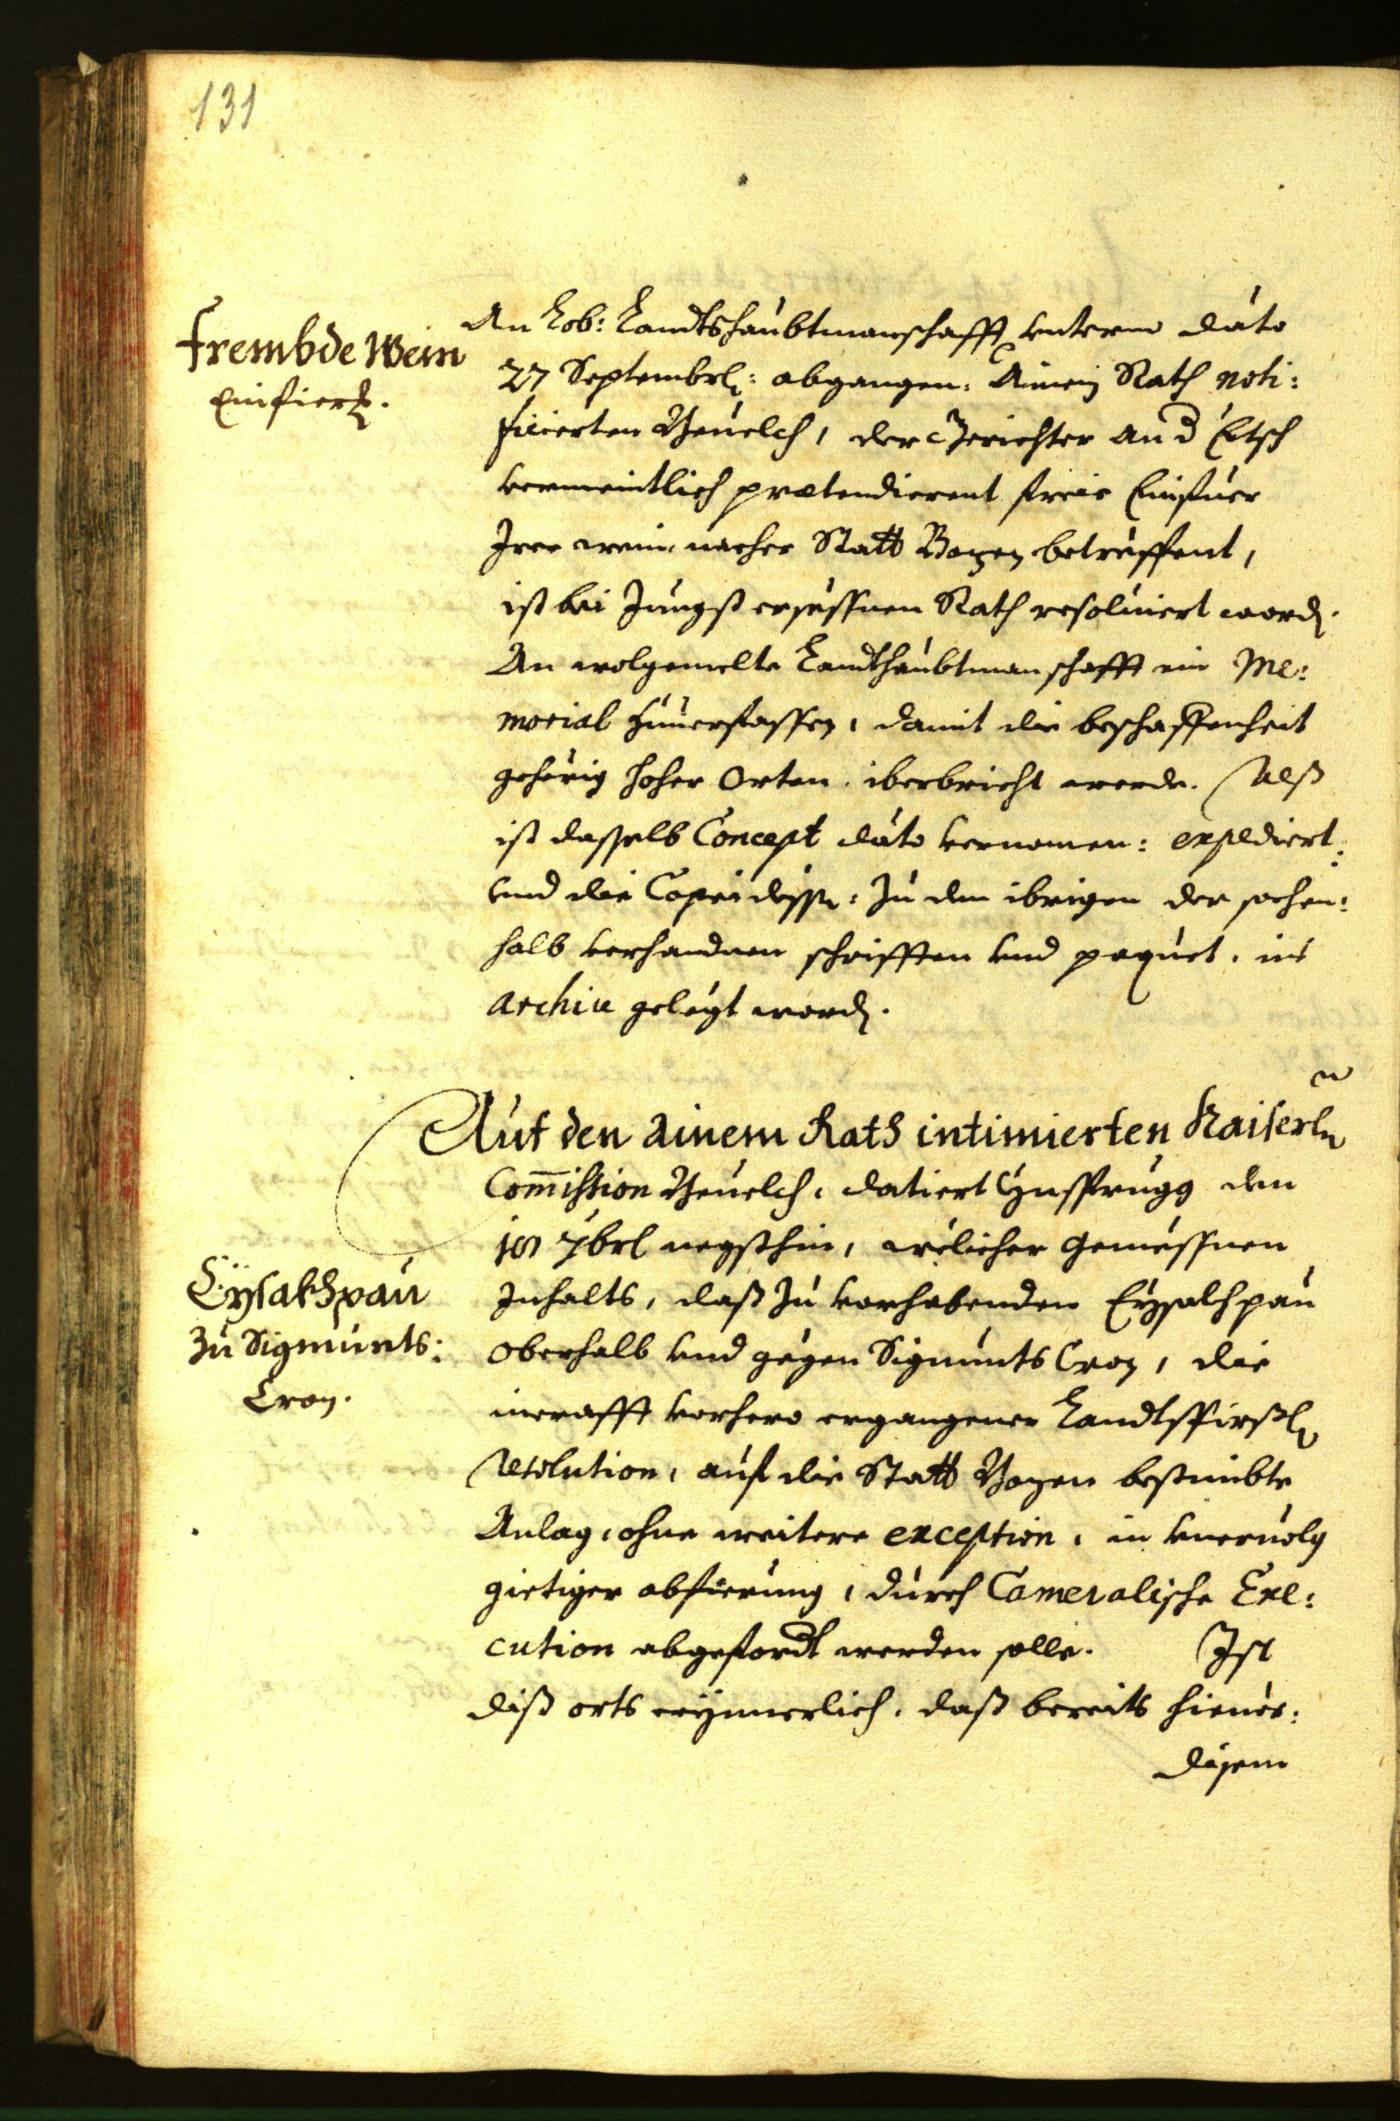 131
Frembde Wein
Einfierß.
An Lob: Landtshaubtmanschafft unterm dato
27 Septembrß: abgangen: Ainem Rath noti:
ficierten Beuelch, der Gerichter an d Etsch
vermeintlich praetendierent freie Einfuer
Irer wein nacher Statt Bozen betreffent,
ist bei Jungst ersessnen Rath resoluiert word.
An wolgemelte Landthaubtmanschafft ein Me:
morial zuuerfassen, damit die beschaffenheit
gehörig hoher Orten iberbricht werde. Alß
ist dasselb Concept dato vernomen: expediert:
und die Copei desse: zu den ibrigen der sachen:
halb verhandnen schrifften und paquet, ins
Archiu gelegt word.
Auf den Ainem Rath intimierten Kaiserln
Commission Beuelch, datiert Ynsprugg den
18 7brß negsthin, welicher gemessnen
Inhalts, daß zu vorhabenden Eysakhpau
Eysakhpau
zu Sigmunts:
Cron.
oberhalb und gegen Sigmunts Cron, die
incrafft vorhero ergangener Landtsfirstl
resolution, auf die Statt Bozen bestimbte
Anlag, ohne weitere exception, in unueruolg
gietiger abfierung, durch Cameralische Exe:
cution abgefordt werden solle. Ist
diß orts erynnerlich, daß bereits hieuor:
disem